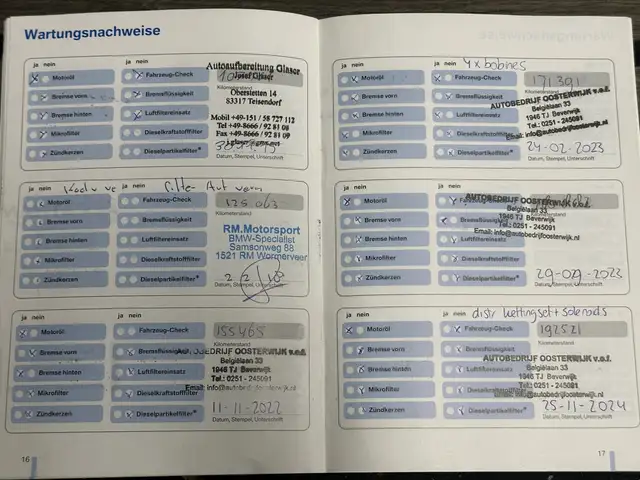 Wartungsnachweise
ja nein
ja nein
Motoröl
Fahrzeug-Check
Bremse vorn
Bremsflüssigkeit
Bremse hinten
Luftfiltereinsatz
Mikrofilter
Dieselkraftstofffilter
Zündkerzen
Dieselpartikelfilter*
Autoaufbereitung Glaser
Josef Glaser
Oberstetten 14
83317 Teisendorf
Mobil +49-151 / 58 727 112
Tel +49-8666 / 92 81 08
Fax +49-8666 / 92 81 09
ja nein
ja nein
Motoröl
Fahrzeug-Check
Bremse vorn
Bremsflüssigkeit
Bremse hinten
Luftfiltereinsatz
Mikrofilter
Dieselkraftstofffilter
Zündkerzen
Dieselpartikelfilter*
125 063
Kilometerstand
RM.Motorsport
BMW-Specialist
Samsonweg 88
1521 RM Wormerveer
Datum, Stempel, Unterschrift
ja nein
ja nein
Motoröl
Fahrzeug-Check
Bremse vorn
Bremsflüssigkeit
Bremse hinten
Luftfiltereinsatz
Mikrofilter
Dieselkraftstofffilter
Zündkerzen
Dieselpartikelfilter*
155465
Kilometerstand
AUTOBEDRIJF OOSTERWIJK v.o.f.
Belgiëlaan 33
1946 TJ Beverwijk
Tel.: 0251 - 245091
Email: info@autobedrijfoosterwijk.nl
11-11-2022
Datum, Stempel, Unterschrift
16
ja nein
ja nein
4x bobines
Motoröl
Fahrzeug-Check
Bremse vorn
Bremsflüssigkeit
Bremse hinten
Luftfiltereinsatz
Mikrofilter
Dieselkraftstofffilter
Zündkerzen
Dieselpartikelfilter*
171391
Kilometerstand
AUTOBEDRIJF OOSTERWIJK v.o.f.
Belgiëlaan 33
1946 TJ Beverwijk
Tel.: 0251 - 245091
Email: info@autobedrijfoosterwijk.nl
24-02-2023
Datum, Stempel, Unterschrift
ja nein
ja nein
Motoröl
Fahrzeug-Check
Bremse vorn
Bremsflüssigkeit
Bremse hinten
Luftfiltereinsatz
Mikrofilter
Dieselkraftstofffilter
Zündkerzen
Dieselpartikelfilter*
AUTOBEDRIJF OOSTERWIJK v.o.f.
Belgiëlaan 33
1946 TJ Beverwijk
Tel.: 0251 - 245091
Email: info@autobedrijfoosterwijk.nl
Datum, Stempel, Unterschrift
ja nein
ja nein
distr kettingset + solenoids
Motoröl
Fahrzeug-Check
Bremse vorn
Bremsflüssigkeit
Bremse hinten
Luftfiltereinsatz
Mikrofilter
Dieselkraftstofffilter
Zündkerzen
Dieselpartikelfilter*
192521
Kilometerstand
AUTOBEDRIJF OOSTERWIJK v.o.f.
Belgiëlaan 33
1946 TJ Beverwijk
Tel.: 0251 - 245091
Email: info@autobedrijfoosterwijk.nl
25-11-2024
Datum, Stempel, Unterschrift
17